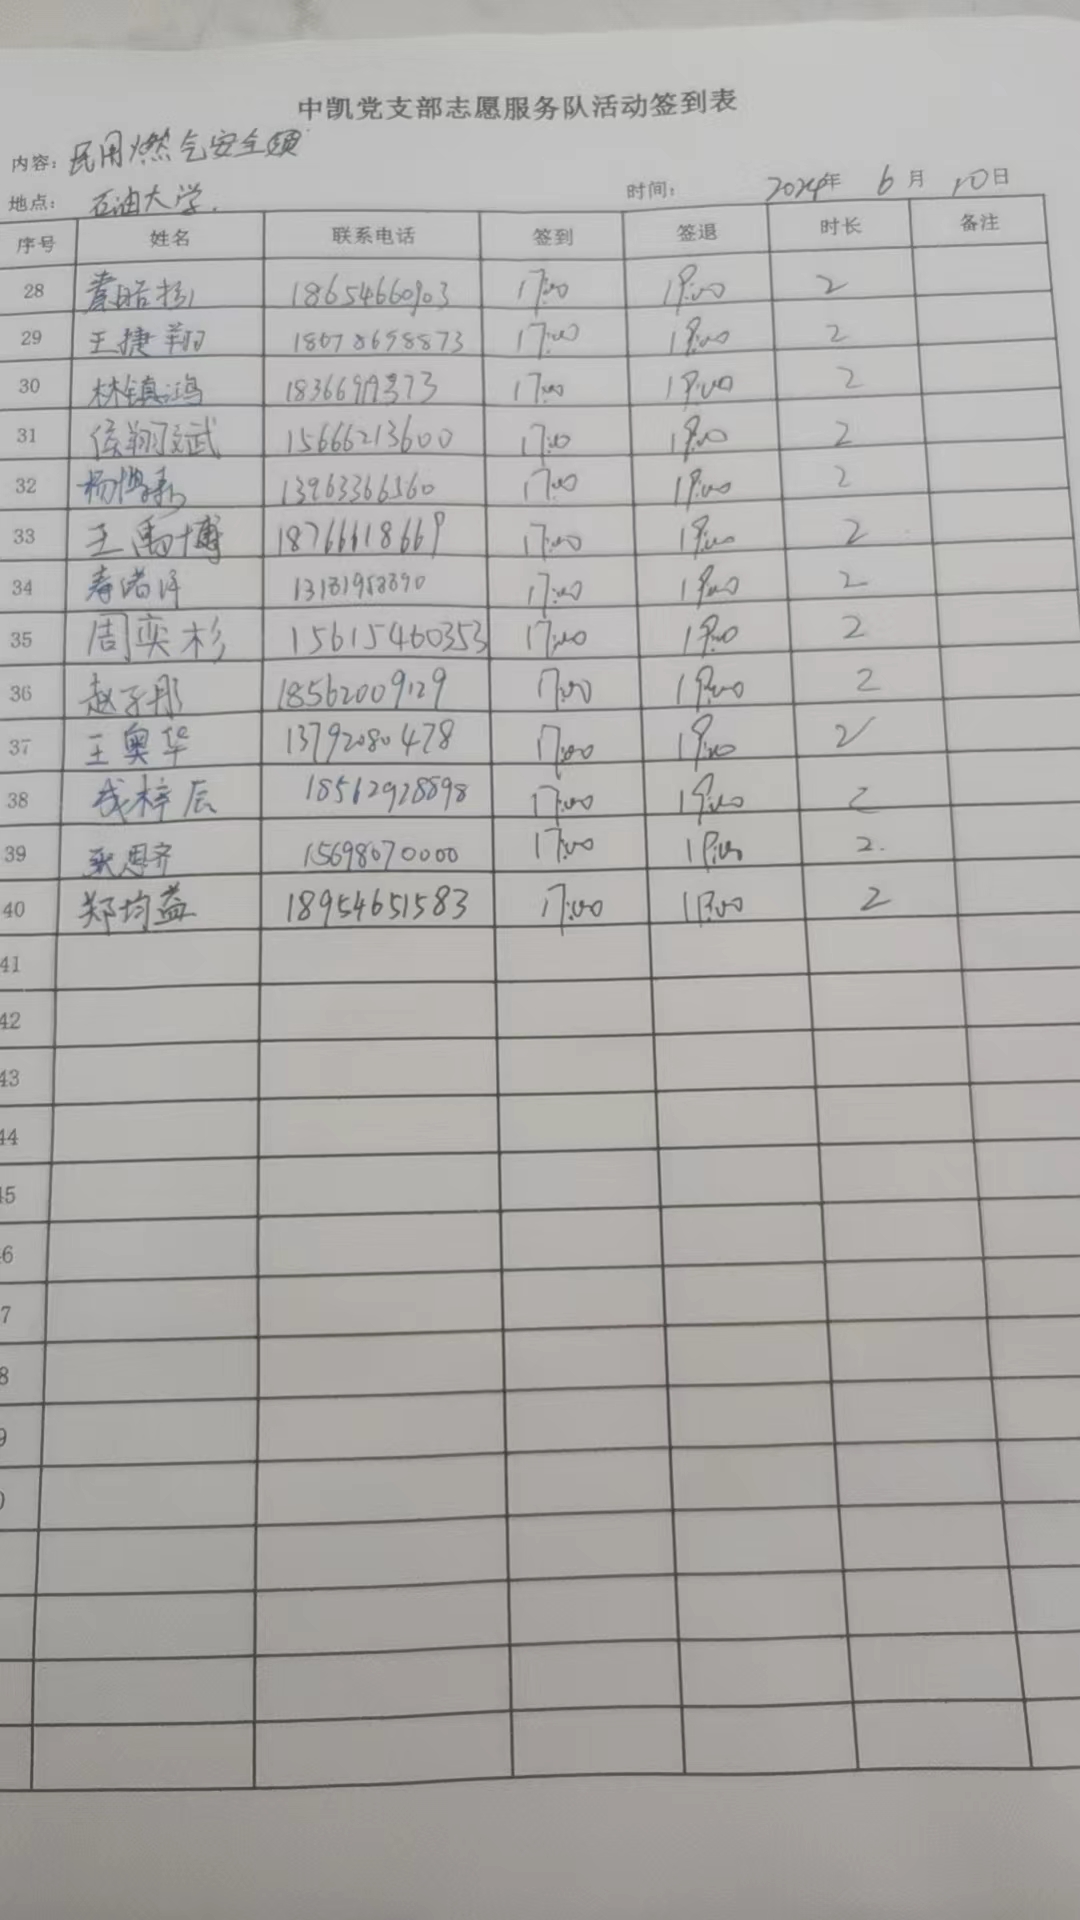 中凯党支部志愿服务队活动签到表
内容：民用燃气安全
地点：石油大学. 时间： 2024年 6月 10日
序号 姓名 联系电话 签到 签退 时长 备注
28 18654660903 17:00 19:00 2
29 王捷翔 18678698873 17:00 19:00 2
30 林镇鸿 17:00 19:00 2
31 侯翔文武 15666213600 17:00 19:00 2
32 13963366560 17:00 19:00 2
33 王禹博 18766618669 17:00 19:00 2
34 17:00 19:00 2
35 周奕杉 15615460353 17:00 19:00 2
36 赵子彤 18562009129 17:00 19:00 2
37 王奥华 13792080478 17:00 19:00 2
38 梓辰 18562928898 17:00 19:00 2
39 耿思齐 15698070000 17:00 19:00 2.
40 郑均益 18954651583 17:00 19:00 2
41
42
43
44
45
46
7
8
9
0